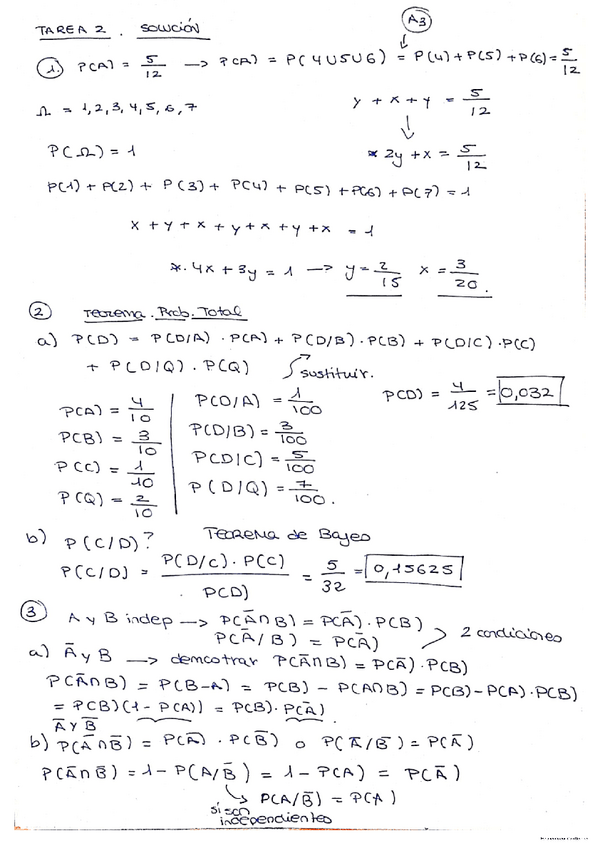 TAREA 2. SOLUCIÓN
A3
1. P(A) = 5/12 → P(A) = P(4∪5∪6) = P(4) + P(5) + P(6) = 5/12
Ω = 1, 2, 3, 4, 5, 6, 7
y + x + y = 5/12
P(Ω) = 1
* 2y + x = 5/12
P(1) + P(2) + P(3) + P(4) + P(5) + P(6) + P(7) = 1
x + y + x + y + x + y + x = 1
*. 4x + 3y = 1 → y = 2/15 x = 3/20.
2 Teorema. Prob. Total
a) P(D) = P(D/A) · P(A) + P(D/B) · P(B) + P(D/C) · P(C)
+ P(D/Q) · P(Q)
sustituir.
P(D) = 4/125 = 0,032
P(A) = 4/10 P(D/A) = 1/100
P(B) = 3/10 P(D/B) = 3/100
P(C) = 1/10 P(D/C) = 5/100
P(Q) = 2/10 P(D/Q) = 7/100.
b) P(C/D)? Teorema de Bayes
P(C/D) = P(D/C) · P(C) / P(D) = 5/32 = 0,15625
3 A y B indep → P(Ā∩B) = P(Ā) · P(B)
P(Ā/B) = P(Ā)
2 condiciones
a) Ā y B → demostrar P(Ā∩B) = P(Ā) · P(B)
P(Ā∩B) = P(B-A) = P(B) - P(A∩B) = P(B) - P(A) · P(B)
= P(B)(1 - P(A)) = P(B) · P(Ā)
Ā y B̄
b) P(Ā∩B̄) = P(Ā) · P(B̄) o P(Ā/B̄) = P(Ā)
P(Ā∩B̄) = 1 - P(A/B̄) = 1 - P(A) = P(Ā)
P(A/B̄) = P(A)
si son
independientes